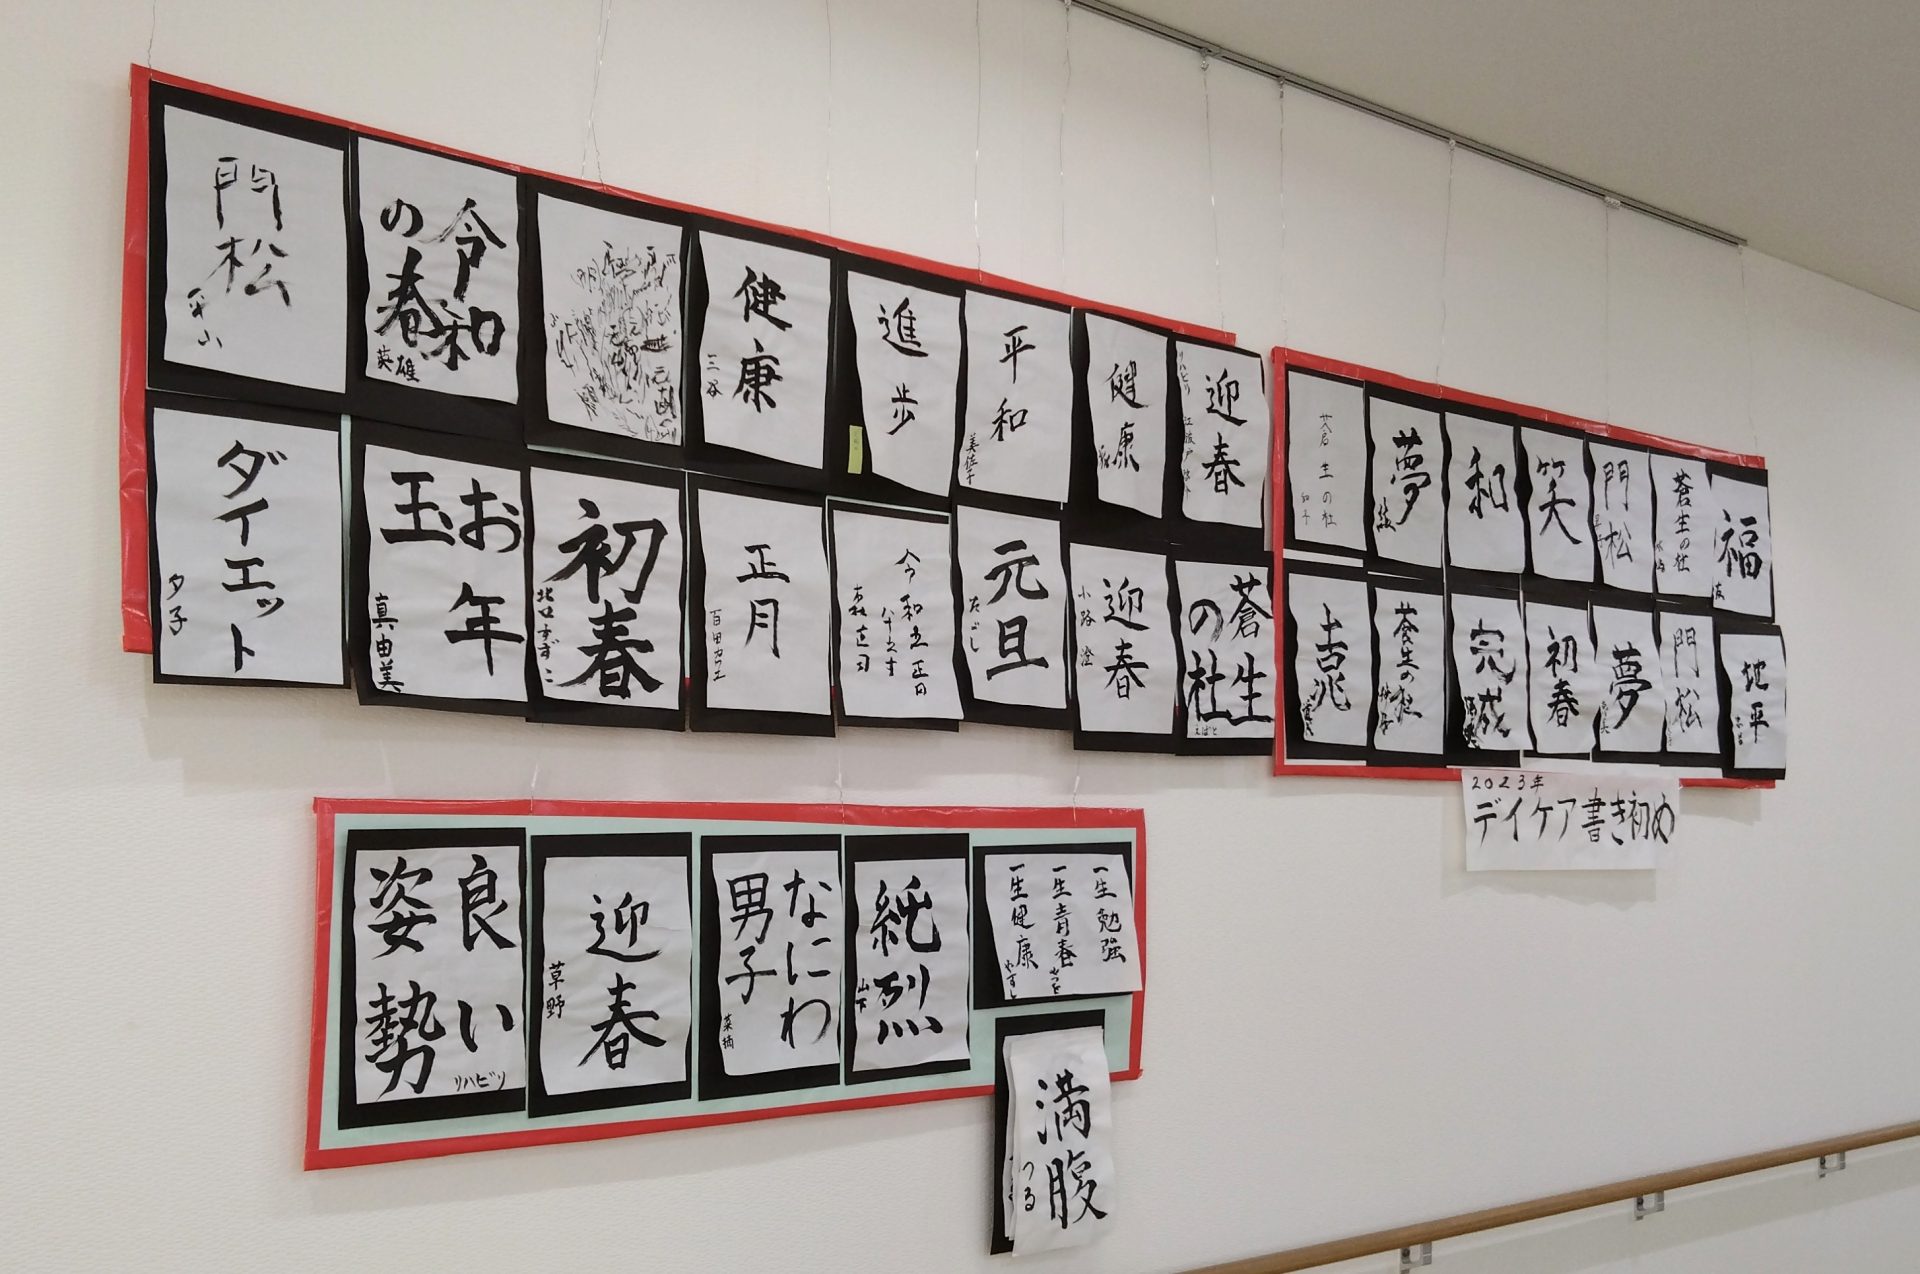 門松
平山
令和
の春
英雄
健康
三谷
進歩
平和
美佐子
健康
迎春
リハビリ
ダイエット
夕子
お年
玉
真由美
初春
北口
正月
百田
令和五正月
元旦
たごし
迎春
小路 澄
蒼生
の杜
えばと
蒼生の杜
和子
夢
綾
和
笑
門松
蒼生の杜
福
吉兆
蒼生の杜
完成
初春
夢
門松
地平
2023年
デイケア書き初め
良い
姿勢
リハビリ
迎春
草野
なにわ
男子
菜摘
純烈
山下
一生勉強
一生青春
一生健康
やすし
満腹
つる